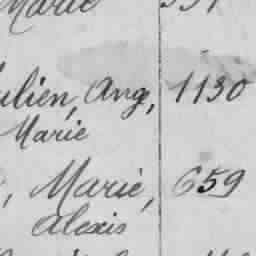 Marie
ulien, Ang, 1130
Marie
, Marie, 659
Alexis